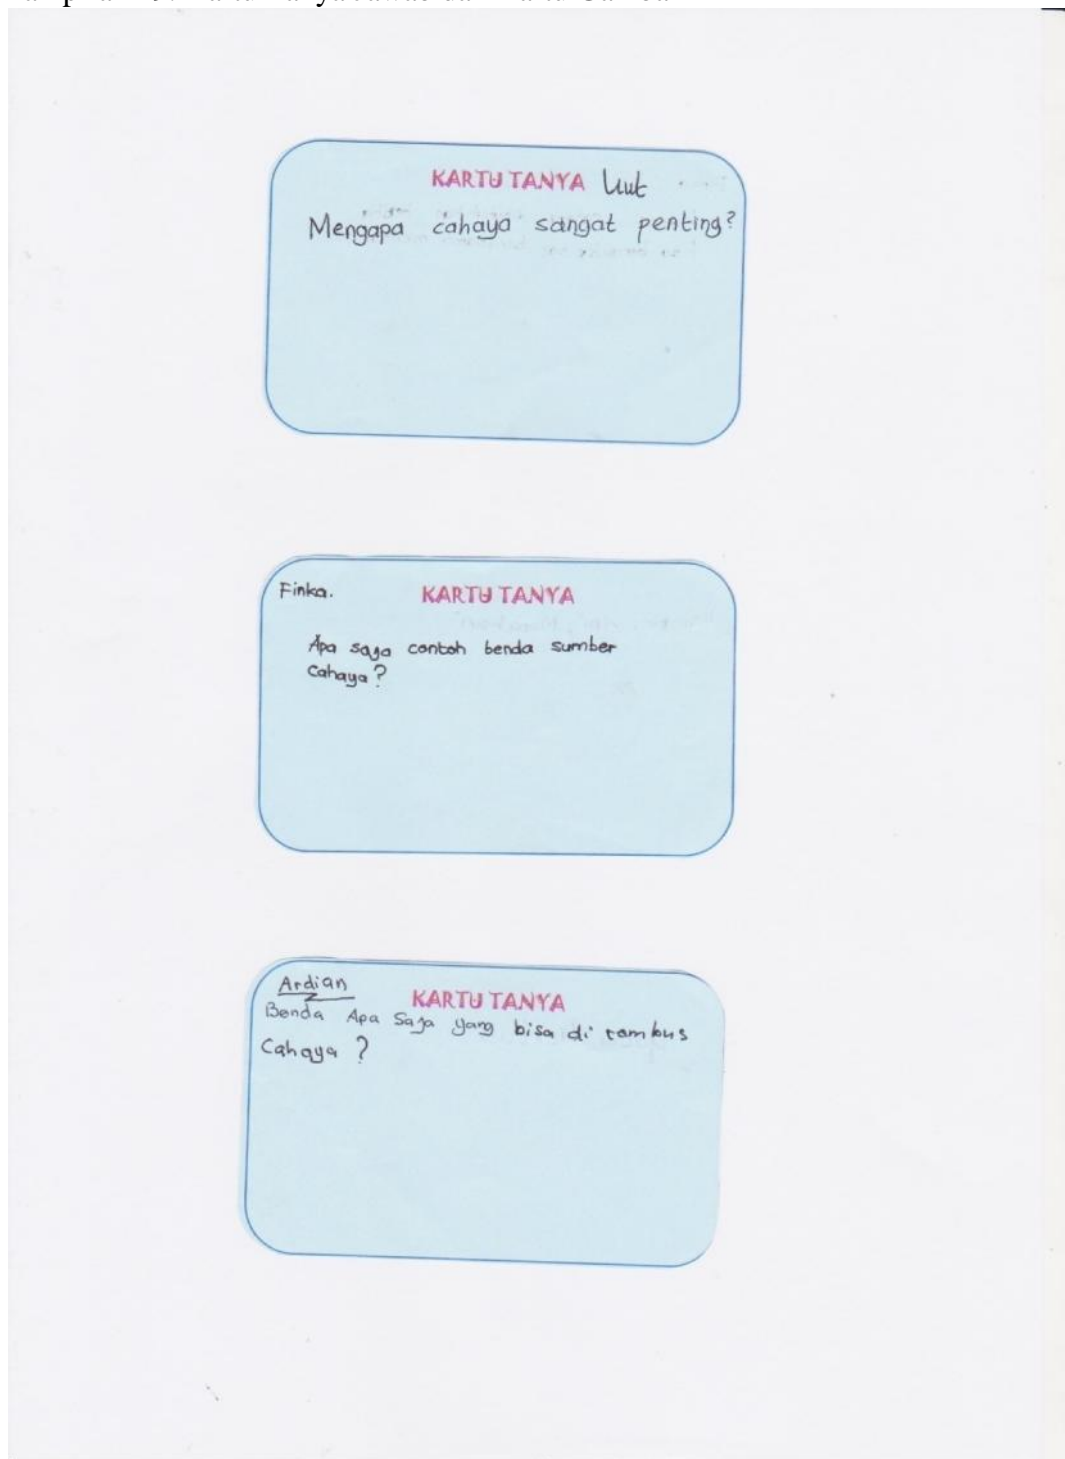 KARTU TANYA Uut
Mengapa cahaya sangat penting?
Finka. KARTU TANYA
Apa saja contoh benda sumber
Cahaya?
Ardian
KARTU TANYA
Benda Apa Saja yang bisa di tambus
Cahaya ?